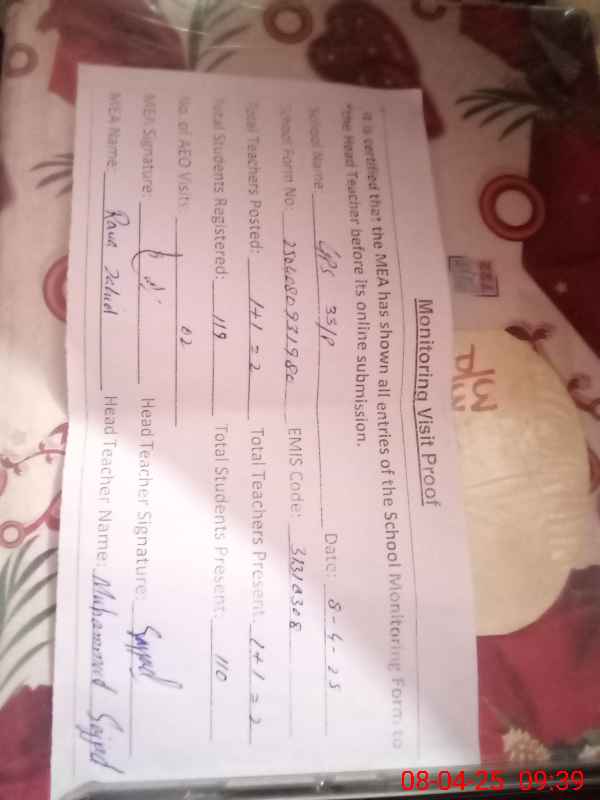 Monitoring Visit Proof
It is certified that the MEA has shown all entries of the School Monitoring Form to
the Head Teacher before its online submission.
School Name: GPS 33/P Date: 8-4-25
School Form No: EMIS Code: 31310308
Total Teachers Posted: 1+1=2 Total Teachers Present: 1+1=2
Total Students Registered: 119 Total Students Present: 110
No. of AEO Visits 02
MEA Signature: Head Teacher Signature: Sajjad
MEA Name: Head Teacher Name: Muhammad Sajjad
08-04-25 09:39